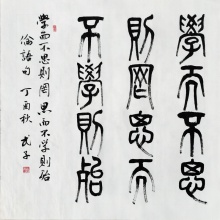 學而不思
則罔思而
不學則殆
學而不思則罔思而不学則殆
論語句丁酉秋武子